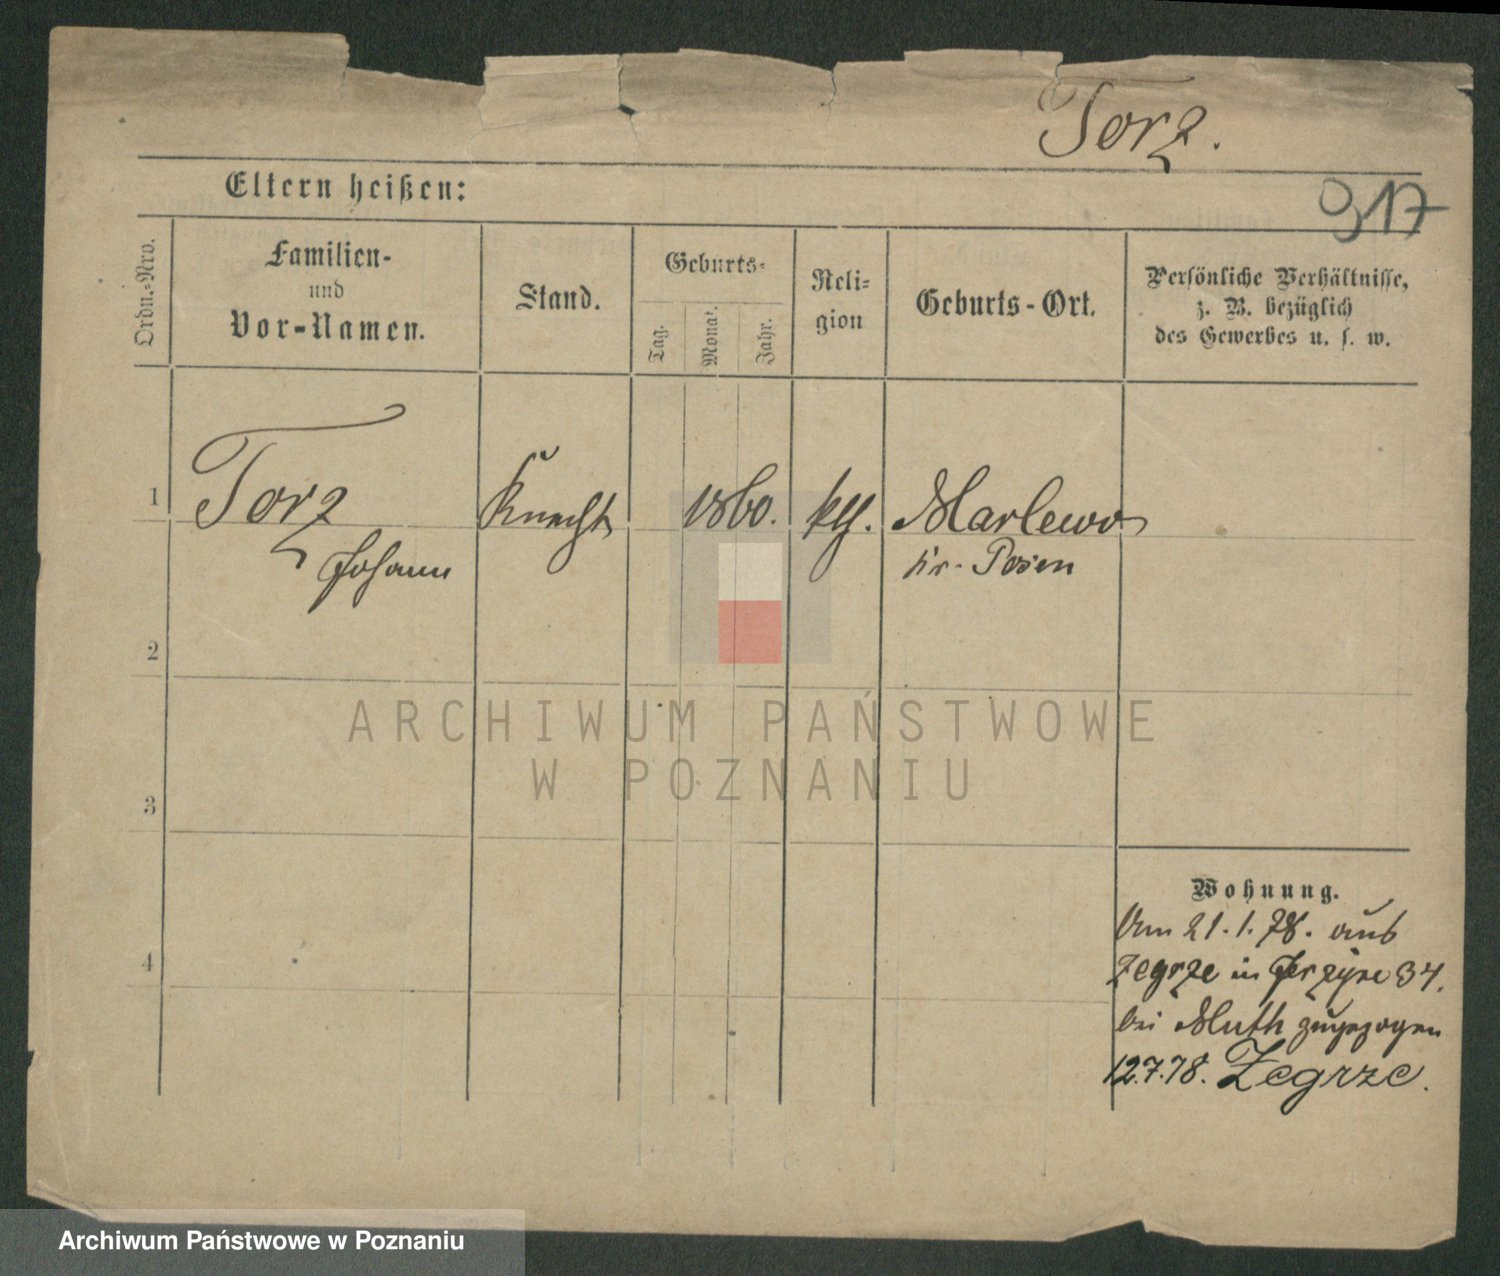 Torz.
Eltern heißen:
317
Ordn.-Nro.
Familien-
und
Vor-Namen.
Stand.
Geburts-
Tag.
Monat.
Jahr.
Reli-
gion
Geburts-Ort.
Persönliche Verhältnisse,
z. B. bezüglich
des Gewerbes u. s. w.
1 Torz Knecht 1860. kth. Marlewo
Johann Kr. Posen
2
3
4
ARCHIWUM PAŃSTWOWE
W POZNANIU
Wohnung.
Am 21.1.78. aus
Zegrze in Jerzyce 34.
bei Muth zugezogen
12.7.78. Zegrze.
Archiwum Państwowe w Poznaniu